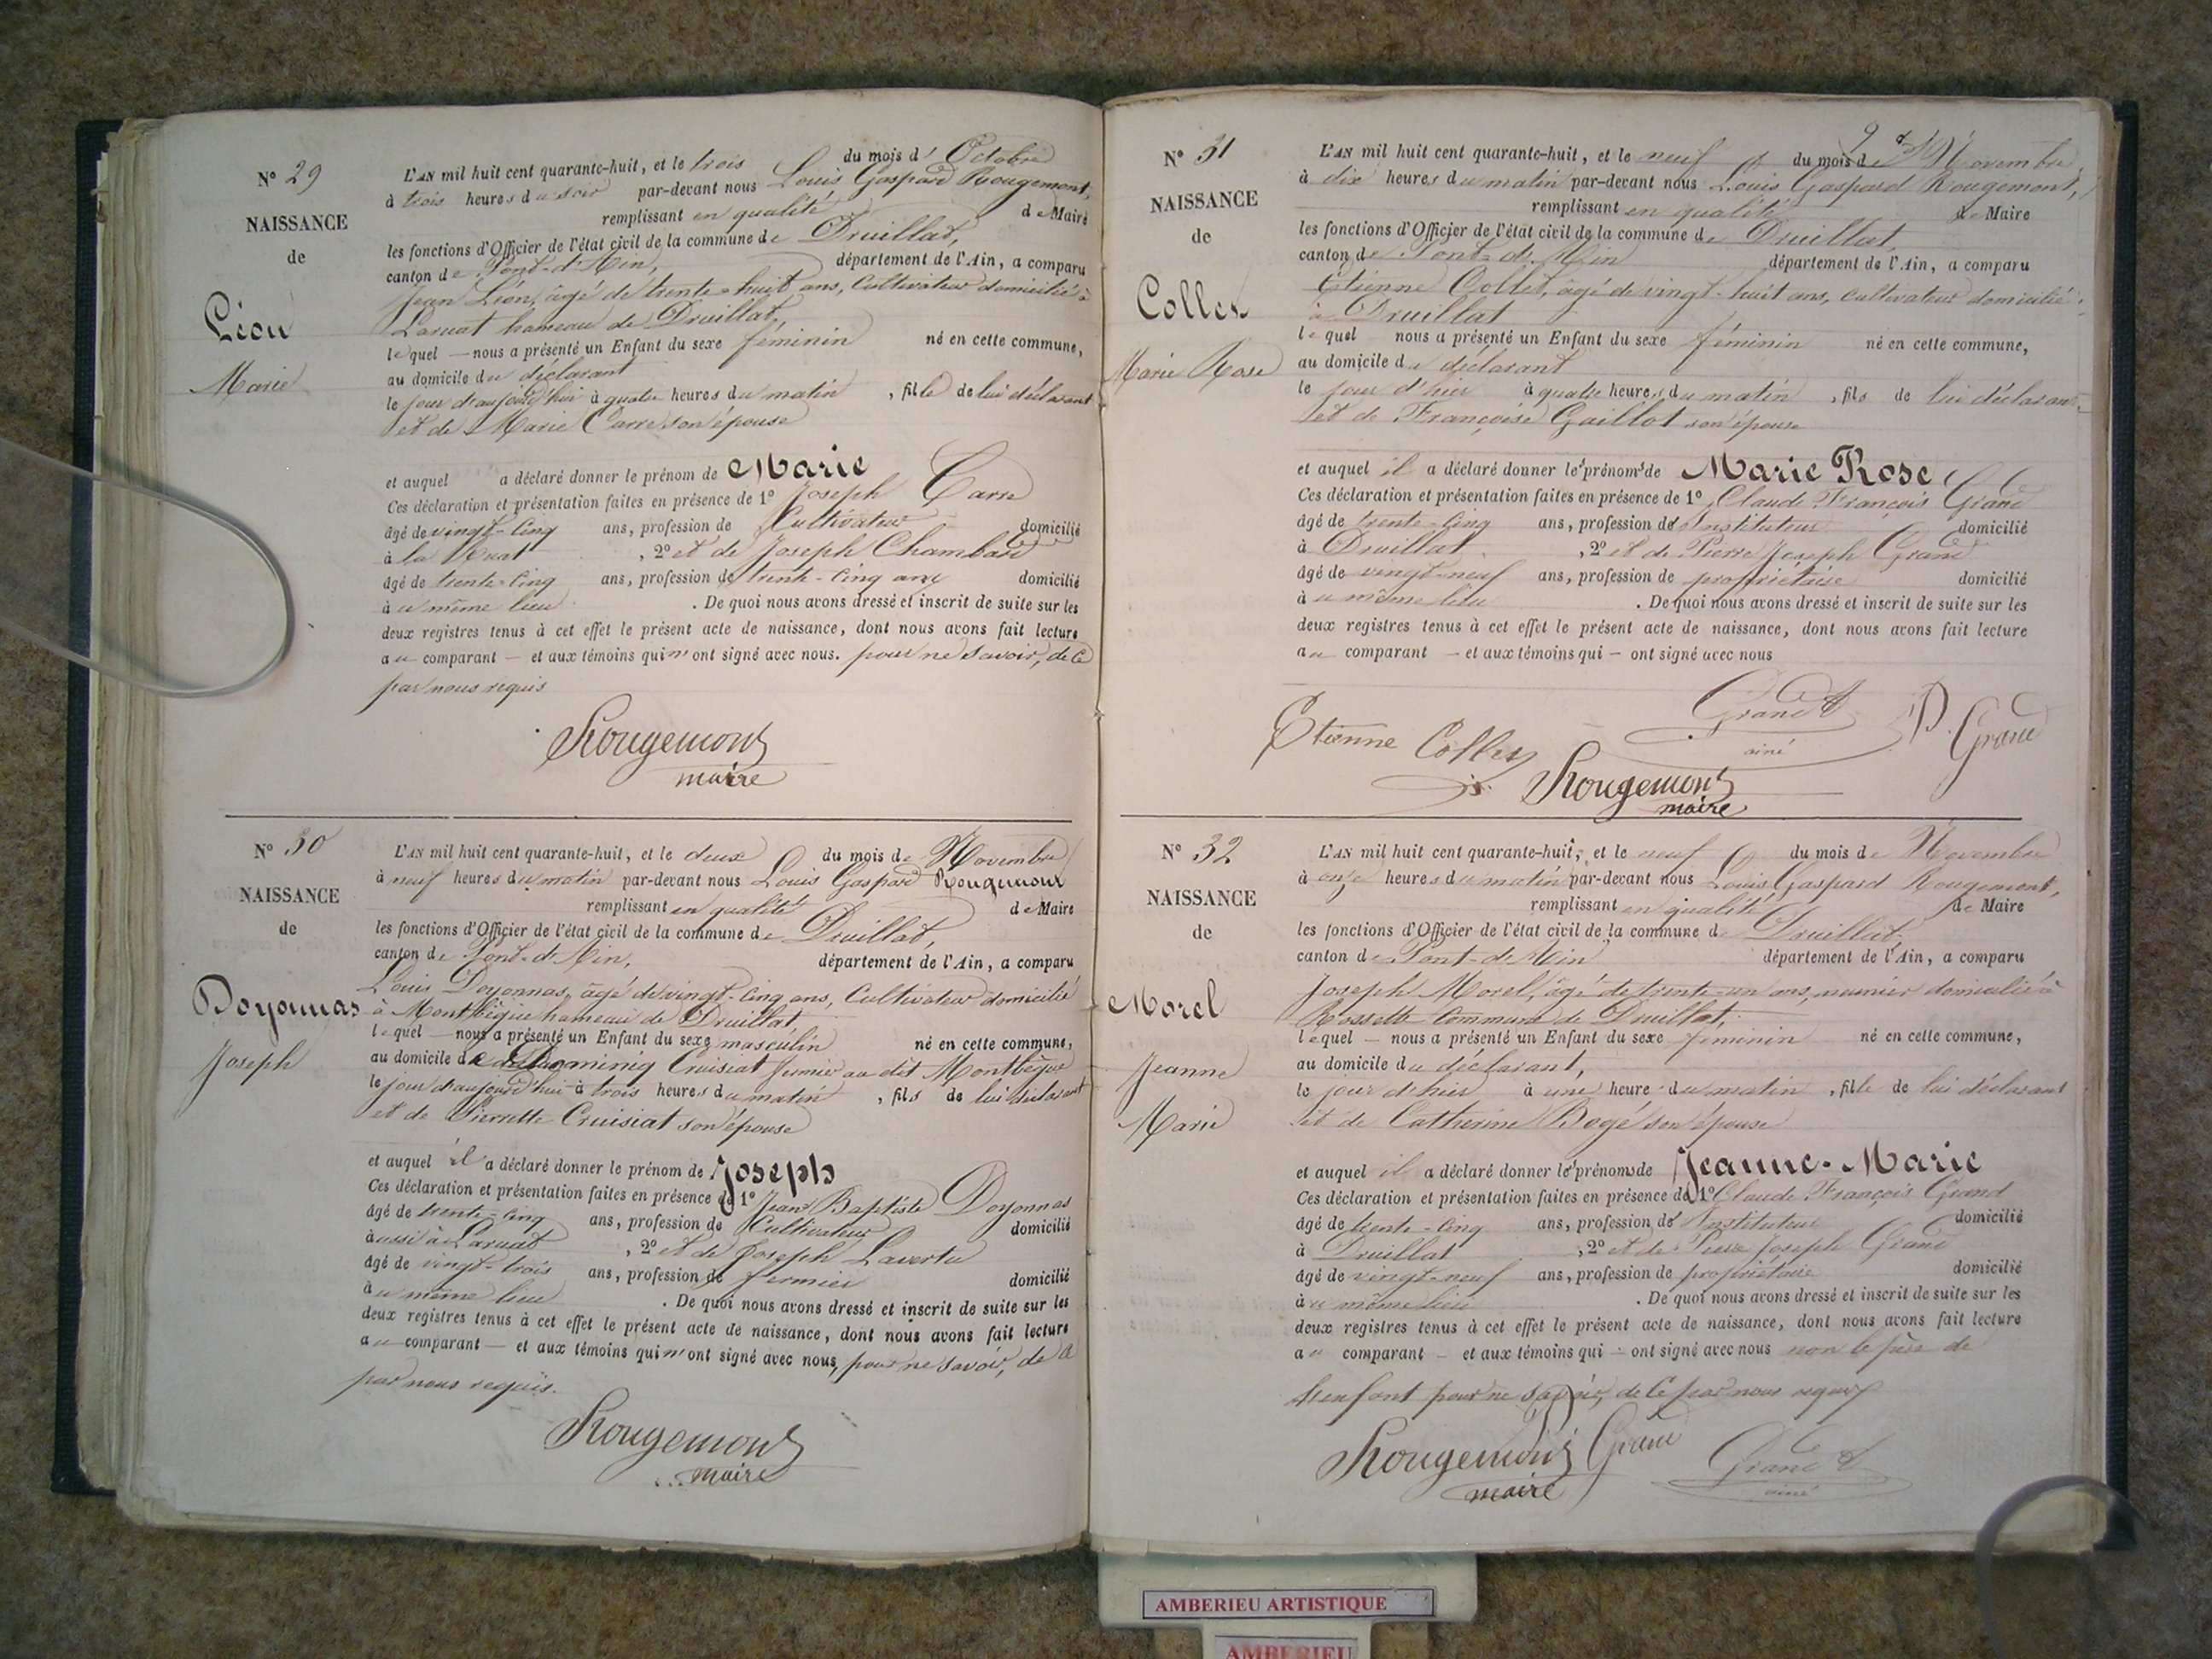 N° 29
NAISSANCE
de
Léon
Marie
L'AN mil huit cent quarante-huit, et le trois du mois d' Octobre
à trois heures du soir par-devant nous Louis Gaspard Rougemont,
remplissant en qualité de Maire
les fonctions d'Officier de l'état civil de la commune de Druillat,
canton de Pont-d'Ain, département de l'Ain, a comparu
Jean Léon, âgé de trente-huit ans, Cultivateur domicilié à
Larnat hameau de Druillat,
lequel — nous a présenté un Enfant du sexe féminin né en cette commune,
au domicile du déclarant
le jour d'aujourd'hui à quatre heures du matin , fille de lui déclarant
et de Marie Carre son épouse
et auquel a déclaré donner le prénom de Marie
Ces déclaration et présentation faites en présence de 1° Joseph Carre
âgé de vingt-cinq ans, profession de Cultivateur domicilié
à la , 2° et de Joseph Chambard
âgé de trente-cinq ans, profession de trente-cinq ans domicilié
à u même lieu . De quoi nous avons dressé et inscrit de suite sur les
deux registres tenus à cet effet le présent acte de naissance, dont nous avons fait lecture
au comparant — et aux témoins qui n'ont signé avec nous. pour ne savoir, de ce
par nous requis
Rougemont
maire
N° 30
NAISSANCE
de
Doyonnas
Joseph
L'AN mil huit cent quarante-huit, et le deux du mois de Novembre
à neuf heures du matin par-devant nous Louis Gaspard Rougemont
remplissant en qualité de Maire
les fonctions d'Officier de l'état civil de la commune de Druillat,
canton de Pont-d'Ain, département de l'Ain, a comparu
Louis Doyonnas, âgé de vingt-cinq ans, Cultivateur domicilié
à Montbègue hameau de Druillat,
lequel — nous a présenté un Enfant du sexe masculin né en cette commune,
au domicile de Dominig Cruisiat fermier au dit Montbègue
le jour d'aujourd'hui à trois heures du matin , fils de lui déclarant
et de Pierrette Cruisiat son épouse
et auquel il a déclaré donner le prénom de Joseph
Ces déclaration et présentation faites en présence de 1° Jean Baptiste Doyonnas
âgé de trente-cinq ans, profession de Cultivateur domicilié
aussi à Larnat , 2° et de Joseph Lavertu
âgé de vingt-trois ans, profession de fermier domicilié
à u même lieu . De quoi nous avons dressé et inscrit de suite sur les
deux registres tenus à cet effet le présent acte de naissance, dont nous avons fait lecture
au comparant — et aux témoins qui n'ont signé avec nous, pour ne savoir, de ce
par nous requis.
Rougemont
maire
N° 31
NAISSANCE
de
Collet
Marie Rose
9 Novembre
L'AN mil huit cent quarante-huit, et le neuf du mois de Novembre
à dix heures du matin par-devant nous Louis Gaspard Rougemont,
remplissant en qualité de Maire
les fonctions d'Officier de l'état civil de la commune de Druillat
canton de Pont-d'Ain département de l'Ain, a comparu
Etienne Collet, âgé de vingt-huit ans, cultivateur domicilié
à Druillat
lequel nous a présenté un Enfant du sexe féminin né en cette commune,
au domicile du déclarant
le jour d'hier à quatre heures du matin , fils de lui déclarant
et de Françoise Gaillot son épouse
et auquel il a déclaré donner les prénoms de Marie Rose
Ces déclaration et présentation faites en présence de 1° Claude François Grand
âgé de trente-cinq ans, profession de Instituteur domicilié
à Druillat , 2° et de Pierre Joseph Grand
âgé de vingt-neuf ans, profession de propriétaire domicilié
à u même lieu . De quoi nous avons dressé et inscrit de suite sur les
deux registres tenus à cet effet le présent acte de naissance, dont nous avons fait lecture
au comparant — et aux témoins qui — ont signé avec nous
Etienne Collet Grand ainé P. Grand
Rougemont
maire
N° 32
NAISSANCE
de
Morel
Jeanne
Marie
L'AN mil huit cent quarante-huit, et le neuf du mois de Novembre
à onze heures du matin par-devant nous Louis Gaspard Rougemont,
remplissant en qualité de Maire
les fonctions d'Officier de l'état civil de la commune de Druillat,
canton de Pont-d'Ain département de l'Ain, a comparu
Joseph Morel, âgé de trente-un ans, meunier domicilié à
Rossette commune de Druillat,
lequel — nous a présenté un Enfant du sexe féminin né en cette commune,
au domicile du déclarant,
le jour d'hier à une heure du matin , fille de lui déclarant
et de Catherine Bogé son épouse
et auquel il a déclaré donner les prénoms de Jeanne-Marie
Ces déclaration et présentation faites en présence de 1° Claude François Grand
âgé de trente-cinq ans, profession de Instituteur domicilié
à Druillat , 2° et de Pierre Joseph Grand
âgé de vingt-neuf ans, profession de propriétaire domicilié
à u même lieu . De quoi nous avons dressé et inscrit de suite sur les
deux registres tenus à cet effet le présent acte de naissance, dont nous avons fait lecture
au comparant — et aux témoins qui — ont signé avec nous non le père de
l'enfant pour ne savoir, de ce par nous requis
Rougemont P. Grand Grand
maire ainé
AMBERIEU ARTISTIQUE
AMBERIEU